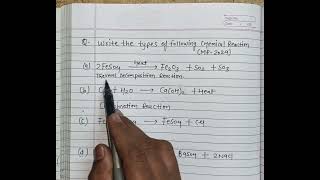 Q- Write the types of following Chemical Reaction
(MP-2024)
(a) 2FeSO4 —Heat→ Fe2O3 + SO2 + SO3
Thermal Decomposition Reaction.
(b) + H2O → Ca(OH)2 + Heat
Reaction
(c) → FeSO4 + Cu
(d) BaSO4 + 2NaCl